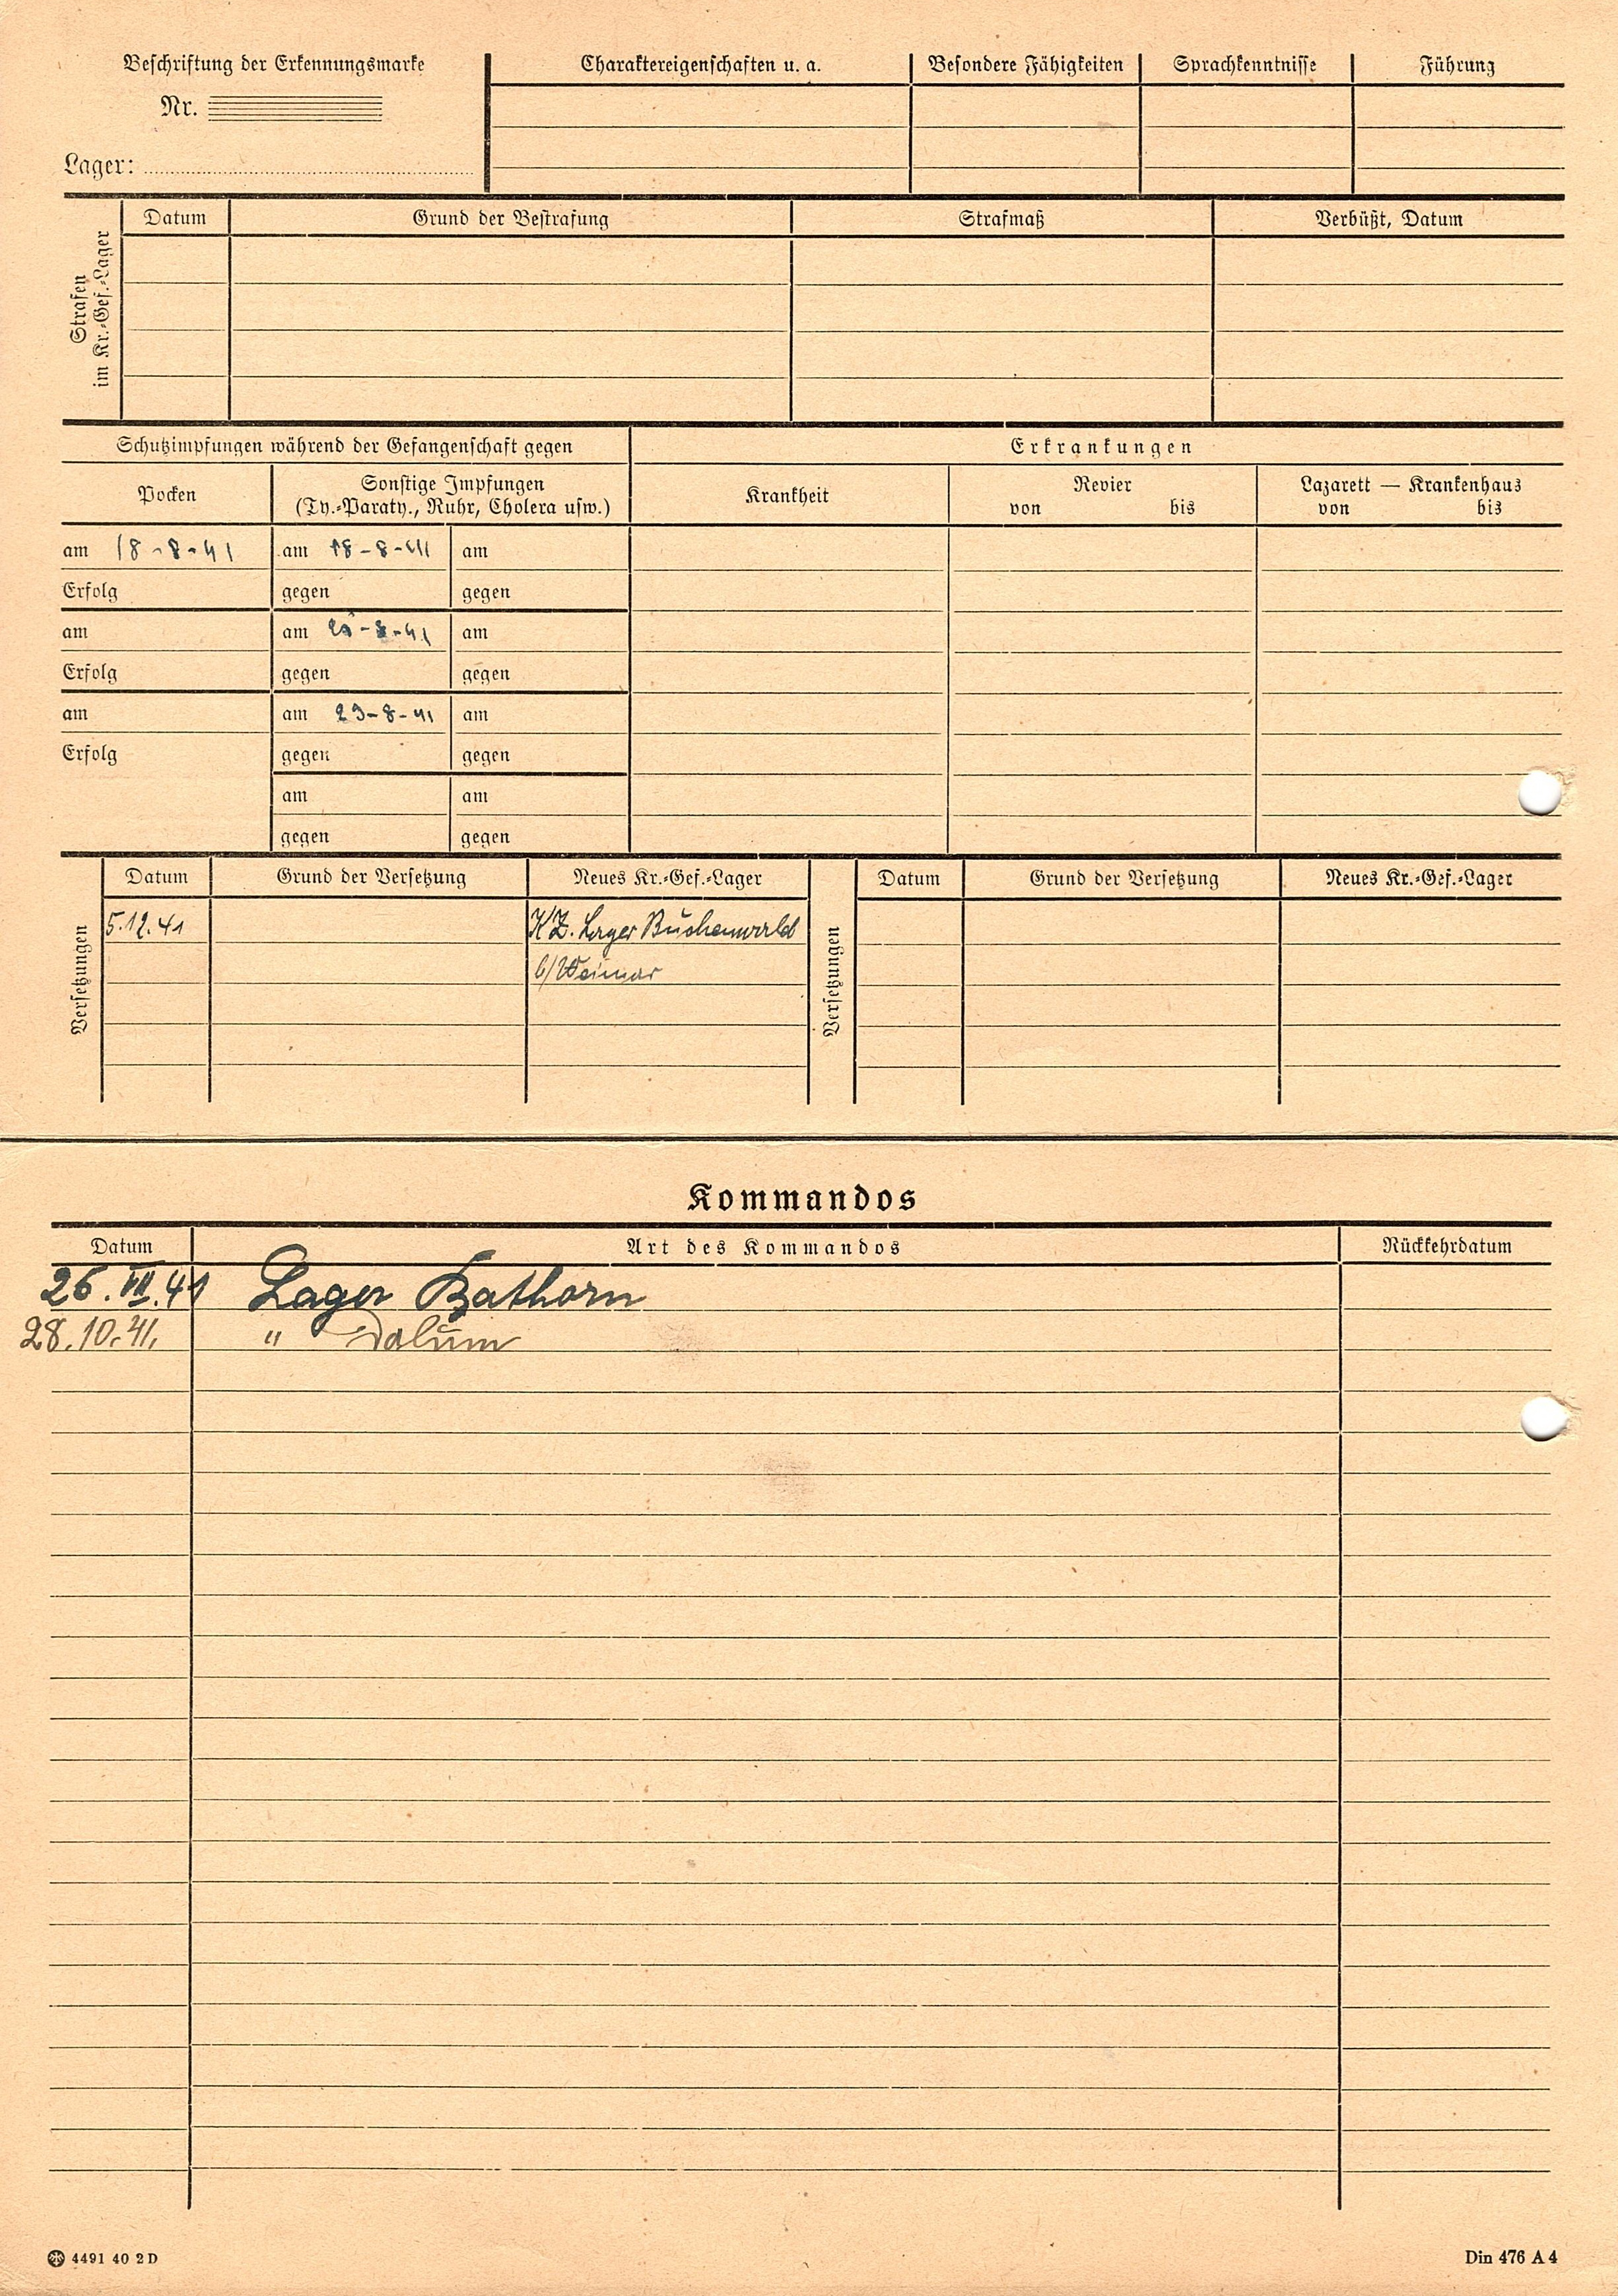 Beschriftung der Erkennungsmarke
Nr.
Lager:
Charaktereigenschaften u. a.
Besondere Fähigkeiten
Sprachkenntnisse
Führung
Strafen
im Kr.-Gef.-Lager
Datum
Grund der Bestrafung
Strafmaß
Verbüßt, Datum
Schutzimpfungen während der Gefangenschaft gegen
Erkrankungen
Pocken
Sonstige Impfungen
(Ty.-Paraty., Ruhr, Cholera usw.)
Krankheit
Revier
von bis
Lazarett — Krankenhaus
von bis
am 18-8-41 am 18-8-41 am
Erfolg gegen gegen
am am -8-41 am
Erfolg gegen gegen
am am 29-8-41 am
Erfolg gegen gegen
am am
gegen gegen
Versetzungen
Datum Grund der Versetzung Neues Kr.-Gef.-Lager
5.12.41 KZ. Lager Buchenwald
b/Weimar
Versetzungen
Datum Grund der Versetzung Neues Kr.-Gef.-Lager
Kommandos
Datum Art des Kommandos Rückkehrdatum
26. VIII. 41 Lager Bathorn
28.10.41. " Dalum
4491 40 2 D
Din 476 A 4